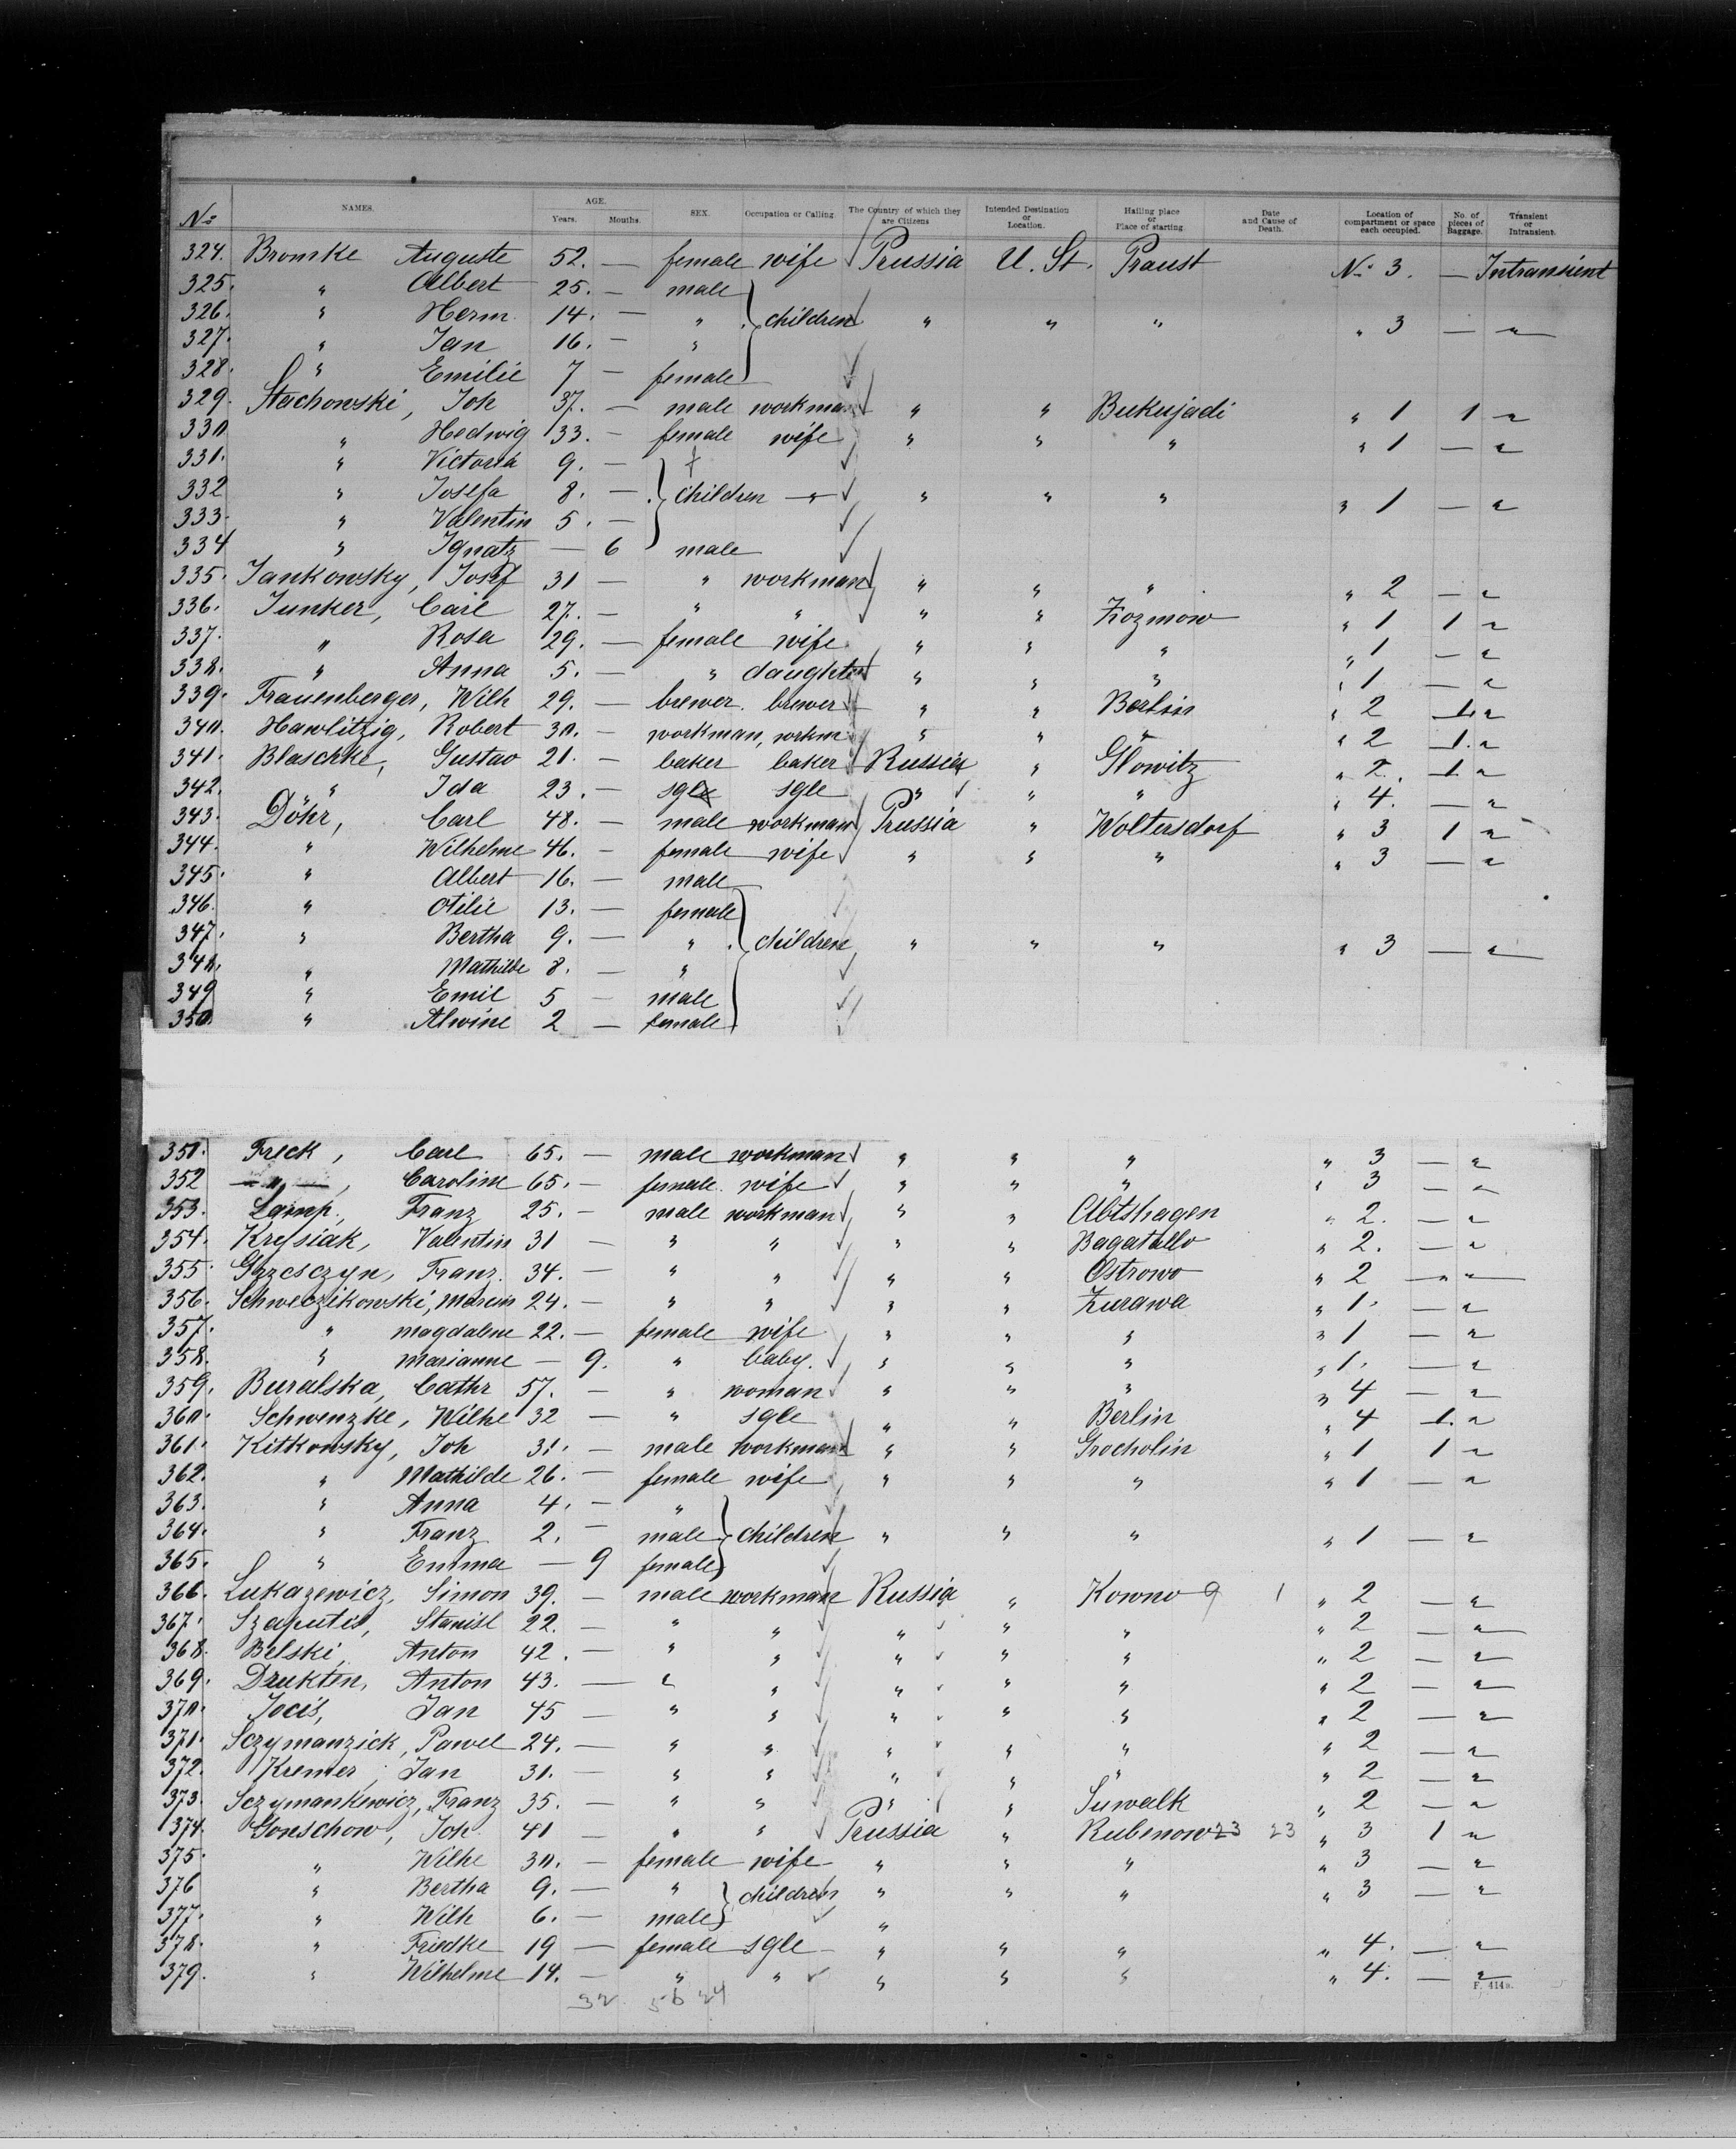 No NAMES. AGE. Years. Months. SEX. Occupation or Calling. The Country of which they are Citizens Intended Destination or Location. Hailing place or Place of starting. Date and Cause of Death. Location of compartment or space each occupied. No. of pieces of Baggage. Transient or Intransient.
324. Bromke Auguste 52. — female wife Prussia U. St. Praust No 3. — Intransient
325. " Albert 25. — male
326. " Herm. 14. — " children " " " " 3 — "
327. " Jan 16. — "
328. " Emilie 7 — female
329. Stachowski, Joh 37. — male workman " " Bukujadi " 1 1 "
330. " Hedwig 33. — female wife " " " " 1 — "
331. " Victoria 9. —
332 " Josefa 8. — children — " " " " " 1 — "
333. " Valentin 5. —
334 " Ignatz — 6 male
335. Jankowsky, Josef 31 — " workman " " " " 2 — "
336. Junker, Carl 27. — " " " " Kozmow " 1 1 "
337. " Rosa 29. — female wife " " " " 1 — "
338. " Anna 5. — " daughter " " " " 1 — "
339. Frauenberger, Wilh 29. — brewer. brewer " " Berlin " 2 1. "
340. Hawlitzig, Robert 30. — workman, workm " " " " 2 1. "
341. Blaschke, Gustav 21. — baker baker Russia " Glowitz " 2. 1 "
342. " Ida 23. — sgle sgle " " " " 4. — "
343. Döhr, Carl 48. — male workman Prussia " Woltersdorf " 3 1 "
344. " Wilhelme 46. — female wife " " " " 3 — "
345. " Albert 16. — male
346. " Otilie 13. — female
347. " Bertha 9. — " children " " " " 3 — "
348. " Mathilde 8. — "
349 " Emil 5 — male
350. " Alwine 2 — female
351. Freck, Carl 65. — male workman " " " " 3 — "
352 — " —, Caroline 65. — female wife " " " " 3 — "
353. Lamp, Franz 25. — male workman " " Abtshagen " 2. — "
354. Krysiak, Valentin 31 — " " " " Bagatello " 2. — "
355. Grzesczyn, Franz. 34. — " " " " Ostrowo " 2 — "
356. Schweczikowski, Marcin 24. — " " " " Zurawa " 1. — "
357. " Magdalene 22. — female wife " " " " 1 — "
358. " Marianne — 9. " baby. " " " " 1. — "
359. Buralska, Cathr 57. — " woman " " " " 4 — "
360. Schwenzke, Wilhe 32 — " sgle " " Berlin " 4 1. "
361. Kitkowsky, Joh 31. — male workman " " Grocholin " 1 1 "
362. " Mathilde 26. — female wife " " " " 1 — "
363. " Anna 4. — "
364. " Franz 2. — male children " " " " 1 — "
365. " Emma — 9 female
366. Lukazewicz, Simon 39. — male workman Russia " Kowno 9 1 " 2 — "
367. Szaputis, Stanisl 22. — " " " " " " 2 — "
368. Belski, Anton 42. — " " " " " " 2 — "
369. Drukten, Anton 43. — " " " " " " 2 — "
370. Jocis, Jan 45 — " " " " " " 2 — "
371. Sczymanzick, Pawel 24. — " " " " " " 2 — "
372. Kremer, Jan 31. — " " " " " " 2 — "
373. Sczymankewicz, Franz 35. — " " " " Suwalk " 2 — "
374. Gonschow, Joh. 41 — " " Prussia " Rubenow 23 23 " 3 1 "
375. " Wilhe 30. — female wife " " " " 3 — "
376 " Bertha 9. — " children " " " " 3 — "
377. " Wilh 6. — male "
378. " Friedke 19 — female sgle " " " " 4. — "
379. " Wilhelme 14. — " " " " " " 4. — "
32 56 24
F. 414b.